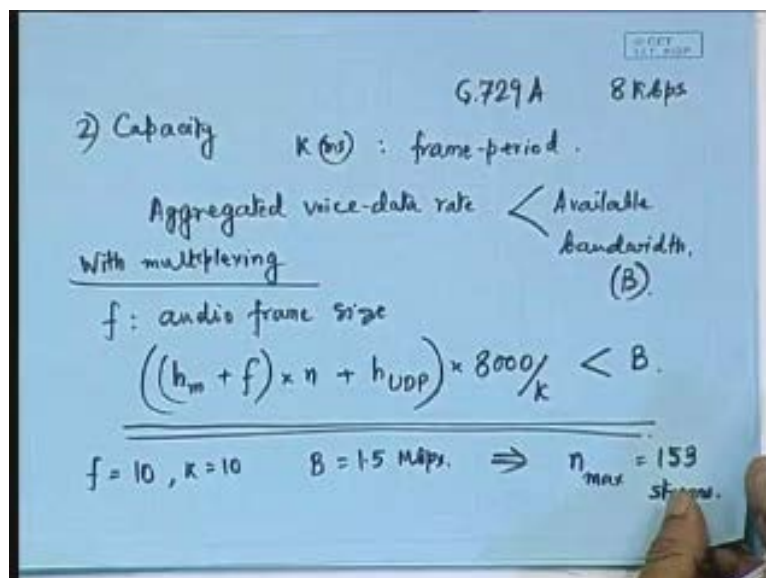 © CET
I.I.T. KGP
G.729A 8 Kbps
2) Capacity K (ms) : frame-period.
Aggregated voice-data rate < Available bandwidth. (B).
With multiplexing
f : audio frame size
((h_m + f) × n + h_UDP) × 8000/K < B.
f = 10, K = 10 B = 1.5 Mbps. ⇒ n_max = 153